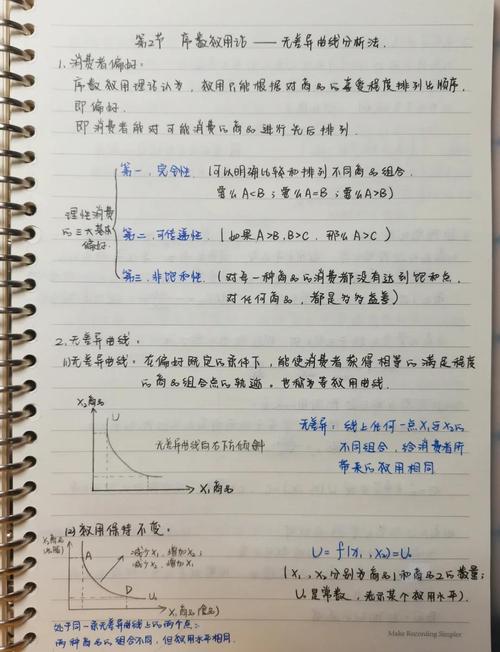 第2节 序数效用论 —— 无差异曲线分析法.
1. 消费者偏好:
序数效用理论认为, 效用只能根据对商品的喜爱程度排列出顺序,
即偏好.
即消费者能对可能消费的商品进行先后排列.
理性消费的三大基本偏好
第一, 完全性. (可以明确比较和排列不同商品组合.
要么A<B; 要么A=B; 要么A>B)
第二, 可传递性. (如果A>B, B>C, 那么A>C)
第三, 非饱和性. (对每一种商品的消费都没有达到饱和点,
对任何商品, 都是多多益善)
2. 无差异曲线.
(1)无差异曲线: 在偏好既定的条件下, 能使消费者获得相等的满足程度
的商品组合点的轨迹. 也称为等效用曲线.
X₂商品
U
无差异曲线向右下方倾斜
X₁商品
无差异: 线上任何一点X₁与X₂的
不同组合, 给消费者所
带来的效用相同
(2) 效用保持不变.
X₂商品
A
减少X₁, 增加X₂;
减少X₂, 增加X₁.
D
U₀
X₁商品
U = f(X₁, X₂) = U₀
(X₁, X₂分别为商品1和商品2的数量;
U₀是常数, 表示某个效用水平).
处于同一条无差异曲线上的两个点:
两种商品的组合不同, 但效用水平相同.
Make Recording Simpler